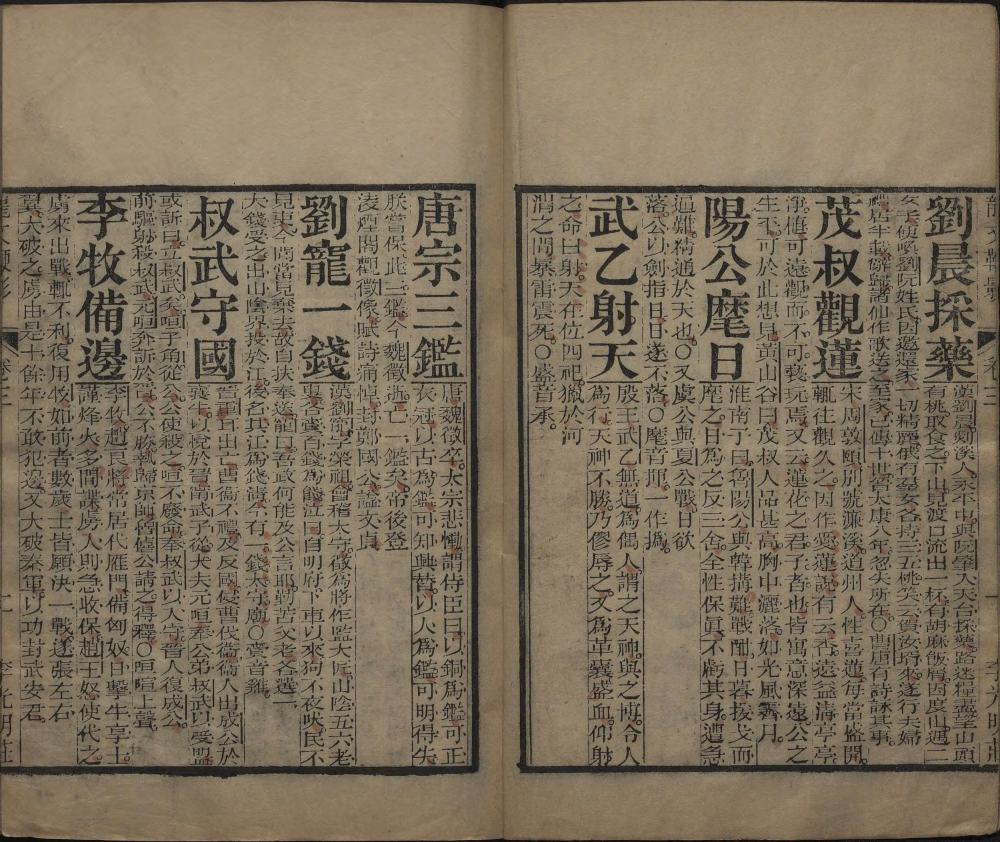 劉晨採藥
漢劉晨剡溪人永平中與阮肇入天台採藥路迷糧盡望山頭
有桃取食之下山見渡口流出一杯有胡麻飯屑因度山遇二
女
使喚劉阮姓氏因邀還家一切精麗俄有
女各持三五桃笑云賀女壻來遂行夫婦
居半載
諸仙作歌送之至家已傳十世晉太康八年忽失所在〇曹唐有詩詠其事
茂叔觀蓮
宋周敦頤別號濂溪道州人性喜蓮每當盛開
輒往觀久之因作愛蓮說有云香遠益清亭亭
淨植可遠觀而不可褻玩焉又云蓮花之君子者也皆寓意深遠公之
生平可於此想見黃山谷曰茂叔人品甚高胸中灑落如光風霽月
陽公麾日
淮南子曰魯陽公與韓搆難戰酣日暮援戈而
麾之日為之反三舍全性保真不虧其身遭急
迫難精通於天也〇又虞公與夏公戰日欲
落公以劍指日日遂不落〇麾音揮一作撝
武乙射天
殷王武乙無道為偶人謂之天神與之博令人
為行天神不勝乃僇辱之又為革囊盛血仰射
之命曰射天在位四祀獵於河
渭之間暴雷震死〇盛音承
唐宗三鑑
唐魏徵卒太宗悲慟謂侍臣曰以銅為鑑可正
衣冠以古為鑑可知興替以人為鑑可明得失
朕嘗保此三鑑今魏徵逝亡一鑑矣帝後登
凌煙閣觀徵像賦詩痛悼封鄭國公諡文貞
劉寵一錢
漢劉寵字榮祖會稽太守徵為將作監大匠山陰五六老
叟各齎百錢為餞泣曰自明府下車以來狗不夜吠民不
見吏今聞當見棄去故自扶奉送寵曰吾政何能及公言耶勤苦父老各選一
大錢受之出山陰界投於江後名其江為錢清今有一錢太守廟〇
叔武守國
晉
衛不禮及反國侵曹伐衛衛人出成公於
襄牛以悅於晉甯武子從大夫元咺奉公弟叔武以受盟
或訴曰立叔武矣咺子角從公公使殺之咺不廢命奉叔武以入守晉人復成公
前驅射殺叔武元咺奔訴於晉公不勝執歸京師
僖公請之得釋〇咺喧上聲
李牧備邊
李牧趙良將常居代雁門備匈奴日擊牛享士
謹烽火多間諜虜人則急收保趙王怒使代之
虜來出戰輒不利復用牧如前者數歲士皆願決一戰遂張左右
翼大破之虜由是十餘年不敢犯邊又大破秦軍以功封武安君
二
李光明莊